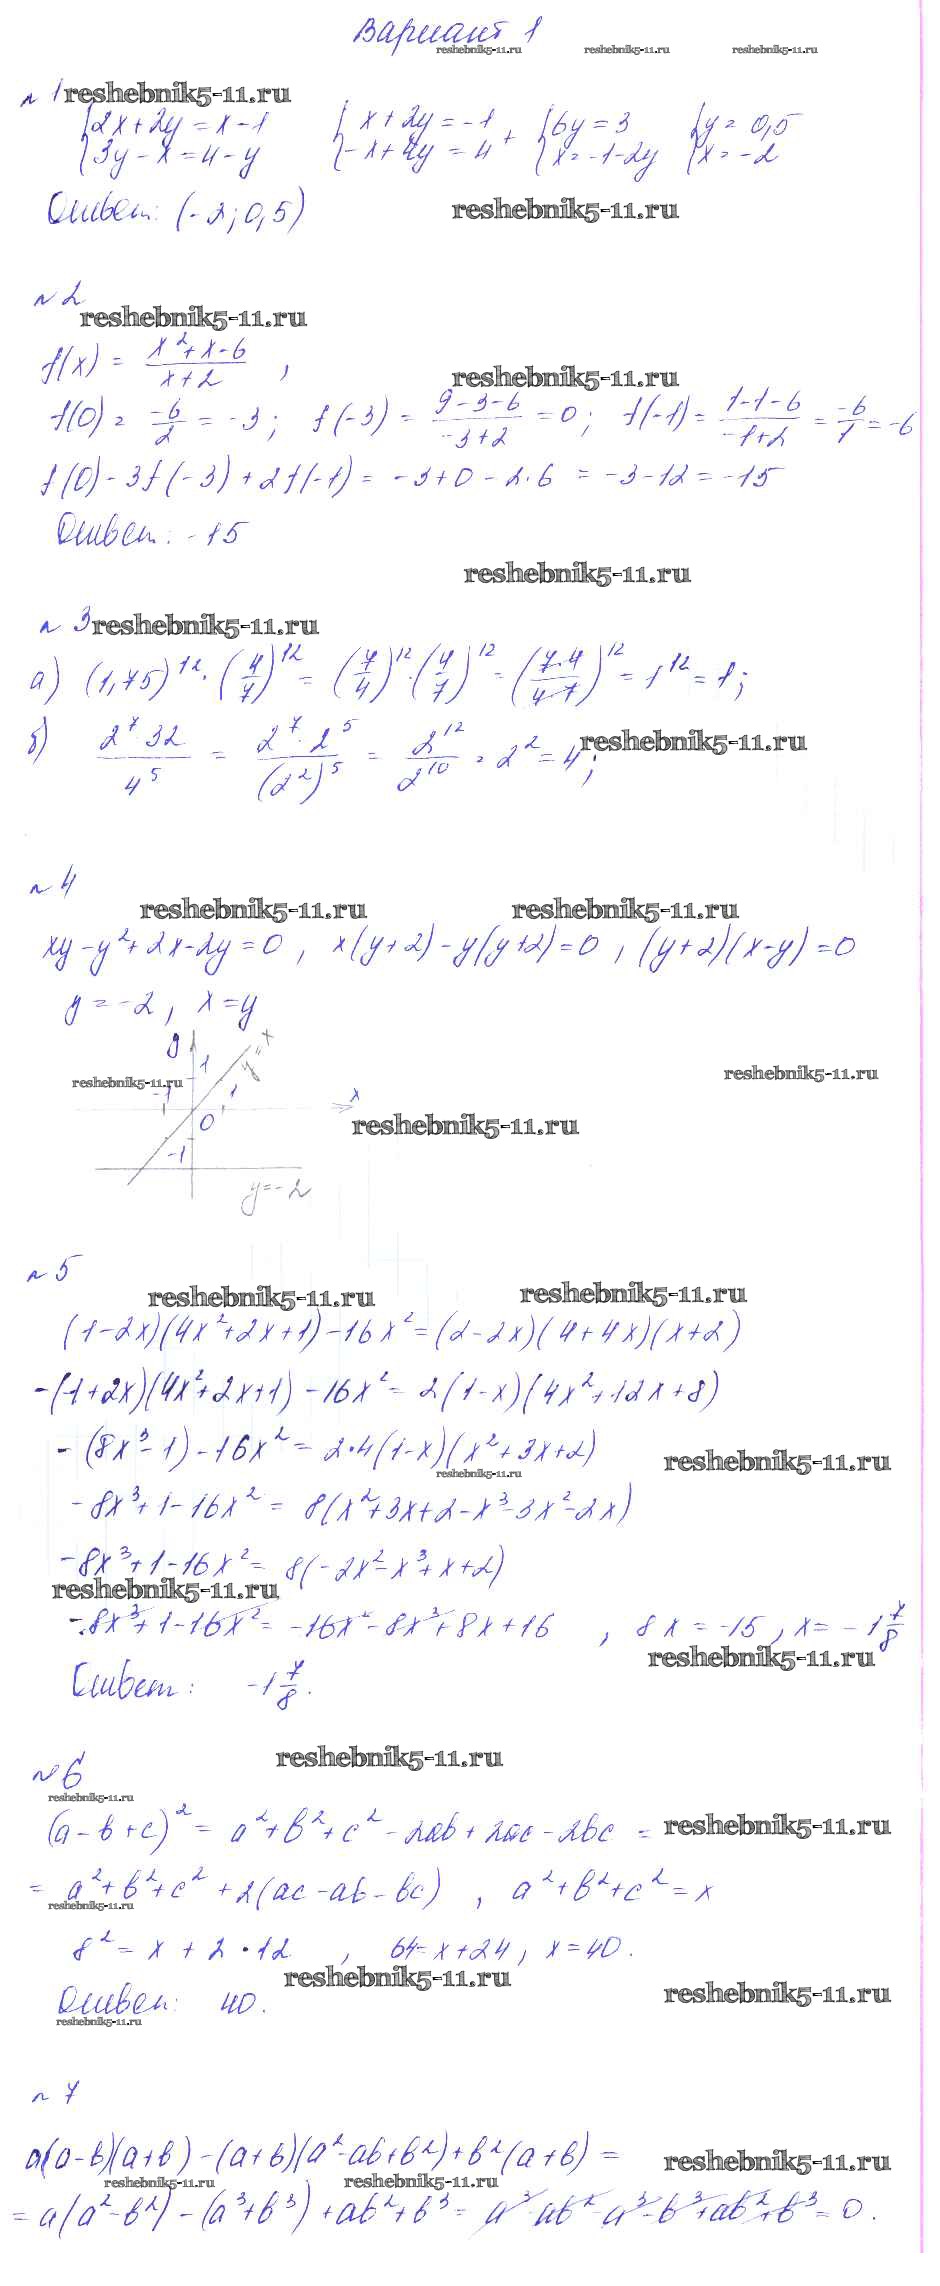 Вариант 1
reshebnik5-11.ru reshebnik5-11.ru reshebnik5-11.ru
№ 1 reshebnik5-11.ru
{2x+2y=x-1 {x+2y=-1 + {6y=3 {y=0,5
{3y-x=4-y {-x+4y=4 {x=-1-2y {x=-2
Ответ: (-2; 0,5) reshebnik5-11.ru
№ 2
reshebnik5-11.ru
f(x) = (x²+x-6)/(x+2) , reshebnik5-11.ru
f(0) = -6/2 = -3; f(-3) = (9-3-6)/(-3+2) = 0; f(-1) = (1-1-6)/(-1+2) = -6/1 = -6
f(0) - 3f(-3) + 2f(-1) = -3+0-2·6 = -3-12 = -15
Ответ: -15
reshebnik5-11.ru
№ 3 reshebnik5-11.ru
а) (1,75)¹² · (4/7)¹² = (7/4)¹² · (4/7)¹² = (7·4/4·7)¹² = 1¹² = 1;
б) 2⁷·32/4⁵ = 2⁷·2⁵/(2²)⁵ = 2¹²/2¹⁰ = 2² = 4; reshebnik5-11.ru
№ 4
reshebnik5-11.ru reshebnik5-11.ru
xy-y²+2x-2y=0 , x(y+2)-y(y+2)=0 , (y+2)(x-y)=0
y=-2, x=y
y 1 y=x
reshebnik5-11.ru reshebnik5-11.ru
-1 1 x
0 reshebnik5-11.ru
-1
y=-2
№ 5
reshebnik5-11.ru reshebnik5-11.ru
(1-2x)(4x²+2x+1)-16x²=(2-2x)(4+4x)(x+2)
-(-1+2x)(4x²+2x+1)-16x²=2(1-x)(4x²+12x+8)
-(8x³-1)-16x²=2·4(1-x)(x²+3x+2)
reshebnik5-11.ru reshebnik5-11.ru
-8x³+1-16x²=8(x²+3x+2-x³-3x²-2x)
-8x³+1-16x²=8(-2x²-x³+x+2)
reshebnik5-11.ru
-8x³+1-16x²=-16x²-8x³+8x+16 , 8x=-15, x=-1 7/8
reshebnik5-11.ru
Ответ: -1 7/8.
reshebnik5-11.ru
№ 6
reshebnik5-11.ru
(a-b+c)²=a²+b²+c²-2ab+2ac-2bc= reshebnik5-11.ru
=a²+b²+c²+2(ac-ab-bc) , a²+b²+c²=x
reshebnik5-11.ru
8²=x+2·12 , 64=x+24, x=40.
reshebnik5-11.ru reshebnik5-11.ru
Ответ: 40.
reshebnik5-11.ru
№ 7
a(a-b)(a+b)-(a+b)(a²-ab+b²)+b²(a+b)= reshebnik5-11.ru
reshebnik5-11.ru reshebnik5-11.ru
=a(a²-b²)-(a³+b³)+ab²+b³=a³-ab²-a³-b³+ab²+b³=0.